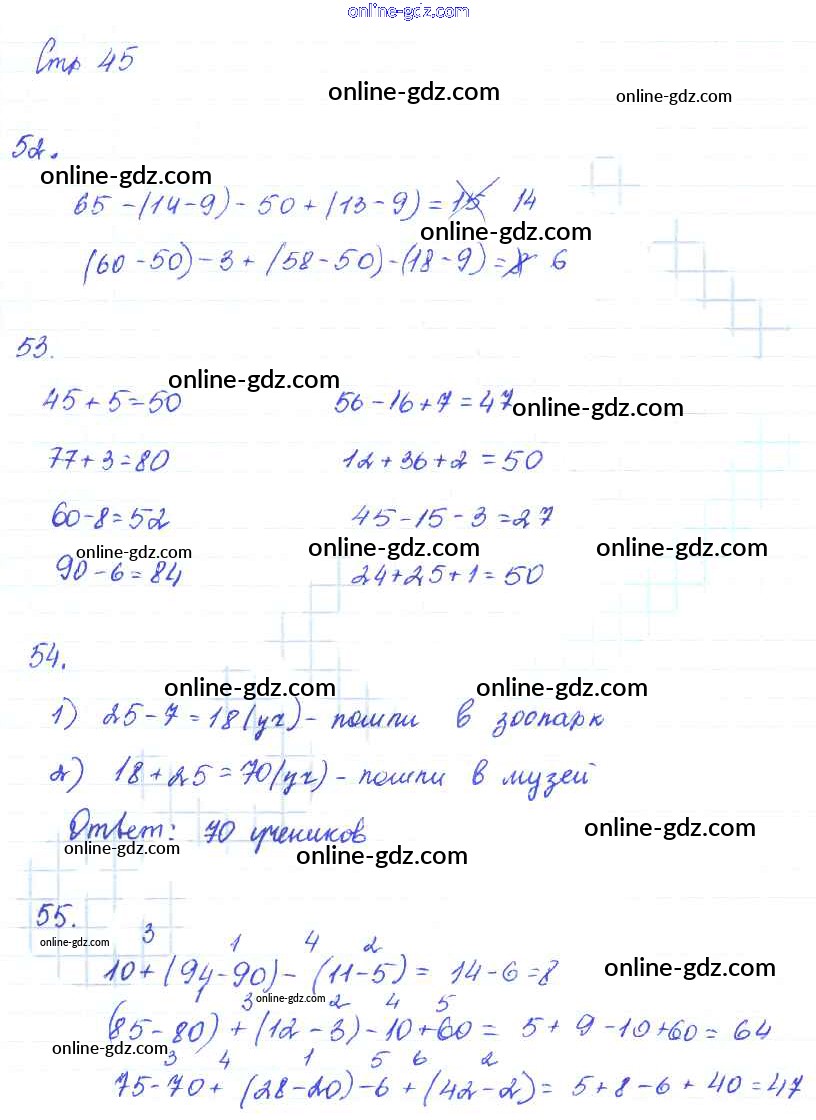 online-gdz.com
Стр 45
online-gdz.com online-gdz.com
52.
online-gdz.com
65 - (14 - 9) - 50 + (13 - 9) = 15 14
online-gdz.com
(60 - 50) - 3 + (58 - 50) - (18 - 9) = 8 6
53.
online-gdz.com
45 + 5 = 50 56 - 16 + 7 = 47 online-gdz.com
77 + 3 = 80 12 + 36 + 2 = 50
60 - 8 = 52 45 - 15 - 3 = 27
online-gdz.com online-gdz.com online-gdz.com
90 - 6 = 84 24 + 25 + 1 = 50
54.
online-gdz.com online-gdz.com
1) 25 - 7 = 18 (уч) - пошли в зоопарк
2) 18 + 25 = 70 (уч) - пошли в музей
Ответ: 70 учеников
online-gdz.com online-gdz.com online-gdz.com
55.
online-gdz.com
3 1 4 2
10 + (94 - 90) - (11 - 5) = 14 - 6 = 8
online-gdz.com
1 3 online-gdz.com 2 4 5
(85 - 80) + (12 - 3) - 10 + 60 = 5 + 9 - 10 + 60 = 64
online-gdz.com
3 4 1 5 6 2
75 - 70 + (28 - 20) - 6 + (42 - 2) = 5 + 8 - 6 + 40 = 47